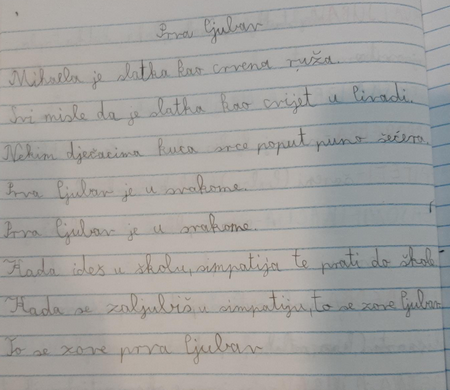 Prva ljubav
Mihaela je slatka kao crvena ruža.
Svi misle da je slatka kao cvijet u livadi.
Nekim dječacima kuca srce poput puno šećera.
Prva ljubav je u svakome.
Prva ljubav je u svakome.
Kada ides u školu, simpatija te prati do škole
Kada se zaljubiš u simpatiju, to se zove ljubav
To se zove prva ljubav